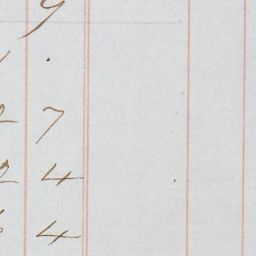 9
.
2 7
2 4
4